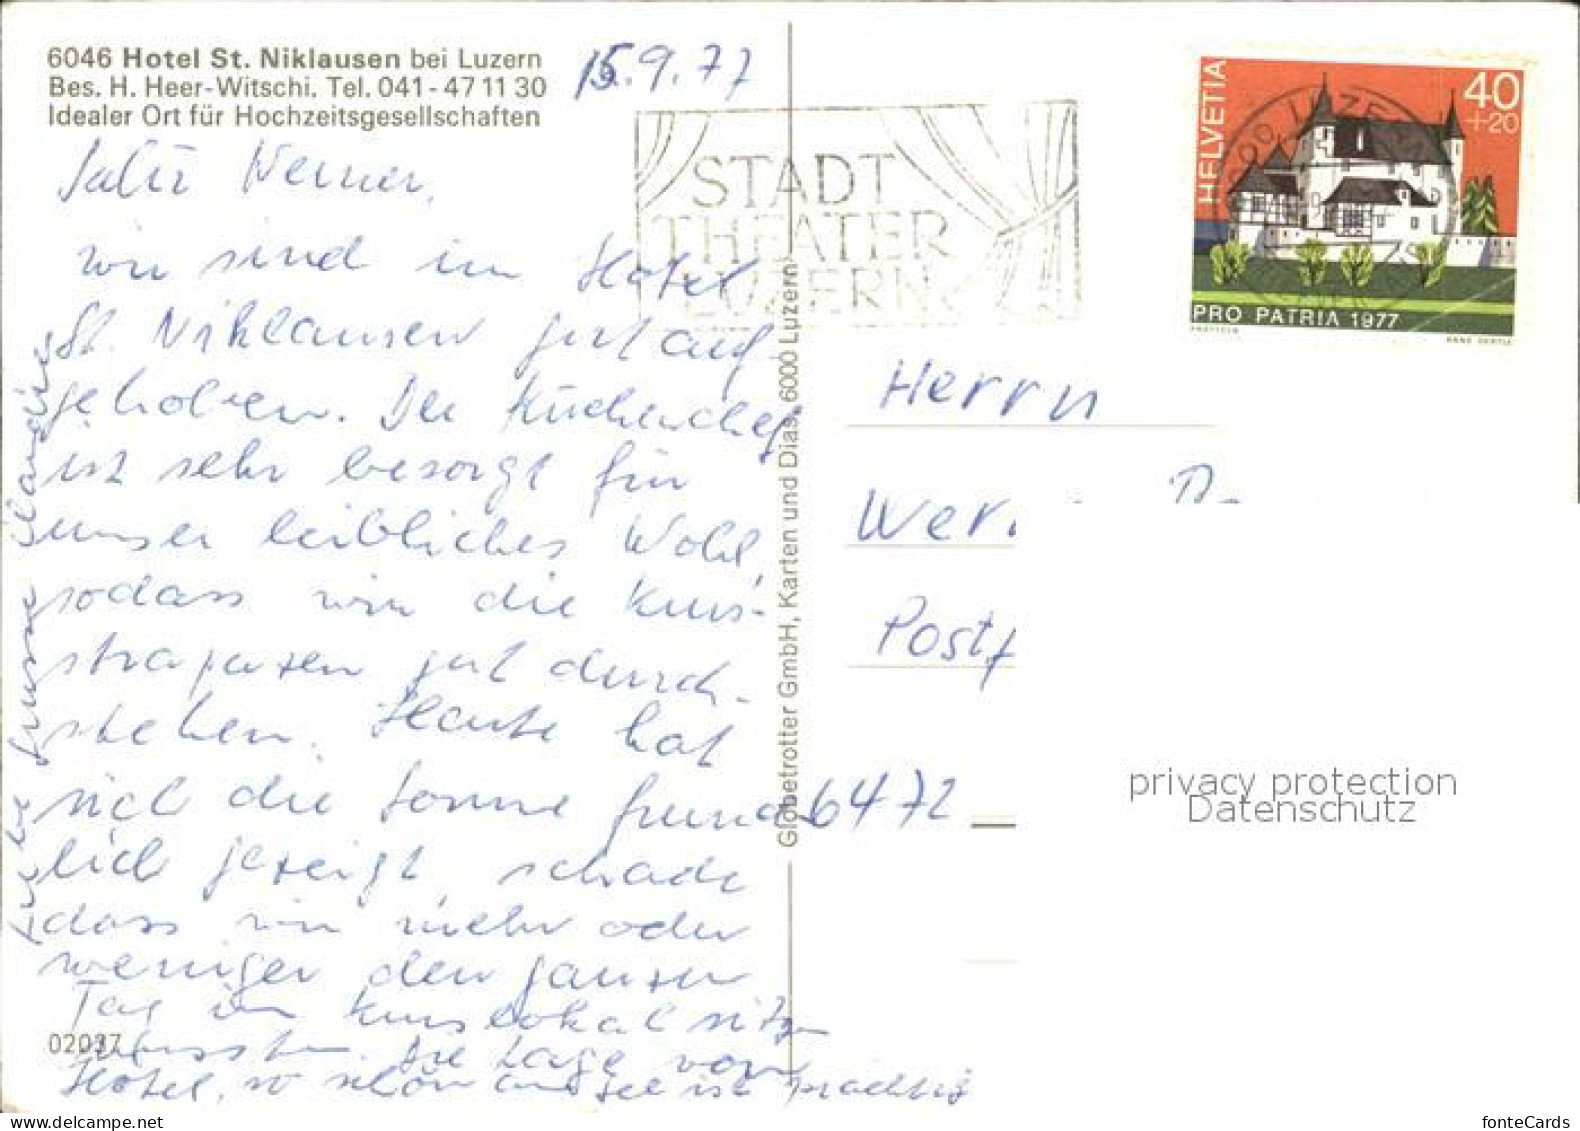 6046 Hotel St. Niklausen bei Luzern
Bes. H. Heer-Witschi. Tel. 041-47 11 30
Idealer Ort für Hochzeitsgesellschaften
15.9.77
Salü Werner,
wir sind im Hotel
St. Niklausen gut auf-
gehoben. Der Küchenchef
ist sehr besorgt für
unser leibliches Wohl,
sodass wir die Kurs-
strapazen gut durch-
stehen. Heute hat
sich die Sonne freund-
lich gezeigt, schade
dass wir mehr oder
weniger den ganzen
Tag im Kurslokal sitzen
mussten. Die Lage vom
Hotel, so schön am See ist prächtig
Liebe Grüsse
02037
Globetrotter GmbH, Karten und Dias, 6000 Luzern
STADT
THEATER
LUZERN
6000 LUZERN
HELVETIA
40
+20
PRO PATRIA 1977
Herrn
Wer
Postf
6472
privacy protection
Datenschutz
fonteCards